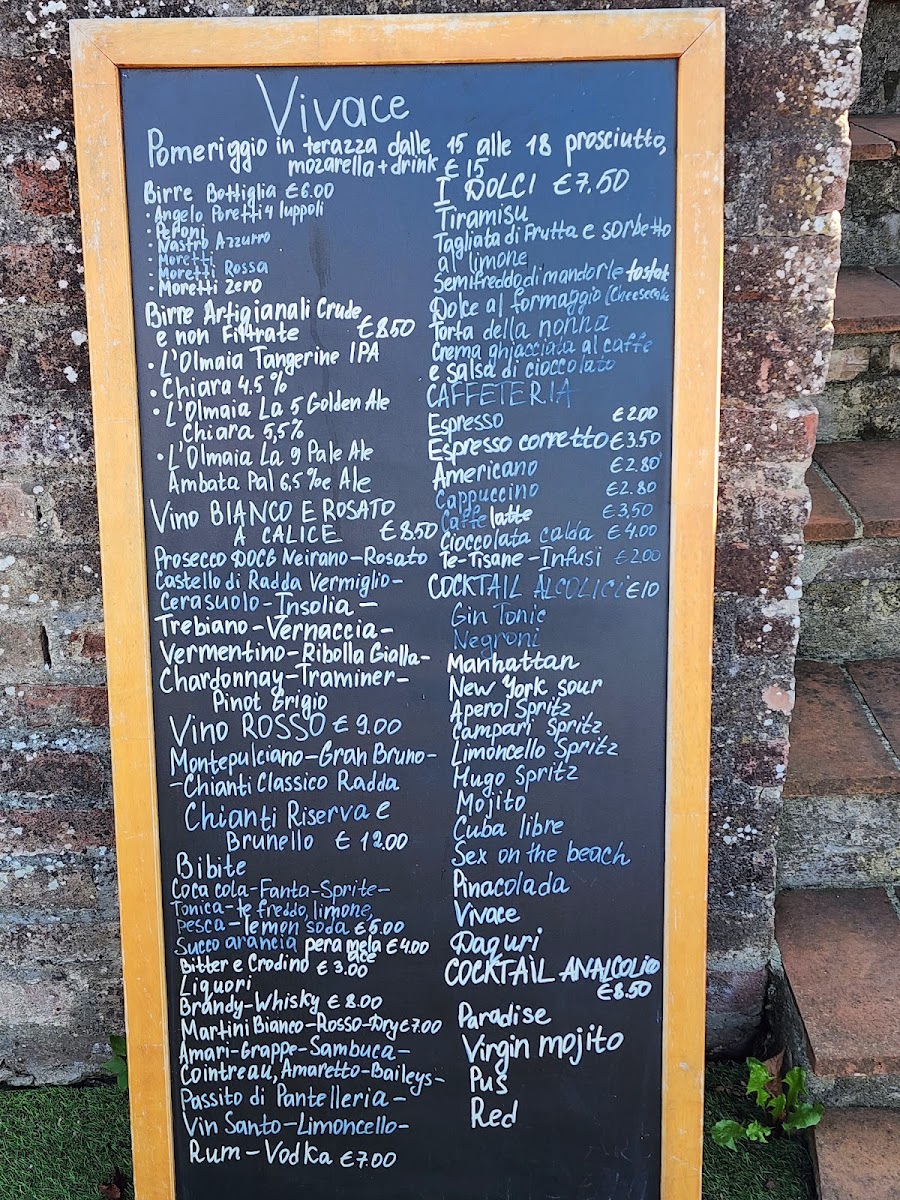 Vivace
Pomeriggio in terazza dalle 15 alle 18 prosciutto,
mozarella + drink € 15
Birre Bottiglia €6.00
· Angelo Poretti 4 luppoli
· Peroni
· Nastro Azzurro
· Moretti
· Moretti Rossa
· Moretti Zero
Birre Artigianali Crude
e non Filtrate €8.50
· L'Olmaia Tangerine IPA
· Chiara 4,5 %
· L'Olmaia La 5 Golden Ale
Chiara 5,5%
· L'Olmaia La 9 Pale Ale
Ambata Pal 6,5 %e Ale
Vino BIANCO E ROSATO
A CALICE €8.50
Prosecco DOCG Neirano-Rosato
Castello di Radda Vermiglio-
Cerasuolo-Insolia-
Trebiano-Vernaccia-
Vermentino-Ribolla Gialla-
Chardonnay-Traminer-
Pinot Grigio
Vino ROSSO € 9.00
Montepulciano-Gran Bruno-
-Chianti Classico Radda
Chianti Riserva e
Brunello € 12.00
Bibite
Coca cola-Fanta-Sprite-
Tonica-te freddo, limone,
pesca-lemon soda €5.00
Succo arancia pera mela €4.00
ace
Bitter e Crodino €3.00
Liquori
Brandy-Whisky €8.00
Martini Bianco-Rosso-Dry €7.00
Amari-Grappe-Sambuca-
Cointreau, Amaretto-Baileys-
Passito di Pantelleria-
Vin Santo-Limoncello-
Rum-Vodka €7.00
I DOLCI €7.50
Tiramisu
Tagliata di Frutta e sorbetto
al limone
Semifreddo di mandorle tostat
Dolce al formaggio (Cheesecake
Torta della nonna
Crema ghiacciata al caffe
e salsa di cioccolato
CAFFETERIA
Espresso €2.00
Espresso corretto €3.50
Americano €2.80
Cappuccino €2.80
Caffe latte €3,50
Cioccolata calda €4.00
Te-Tisane-Infusi €2.00
COCKTAIL ALCOLICI €10
Gin Tonic
Negroni
Manhattan
New York sour
Aperol Spritz
Campari Spritz
Limoncello Spritz
Hugo Spritz
Mojito
Cuba libre
Sex on the beach
Pinacolada
Vivace
Daquri
COCKTAIL ANALCOLICO
€8.50
Paradise
Virgin mojito
Pus
Red